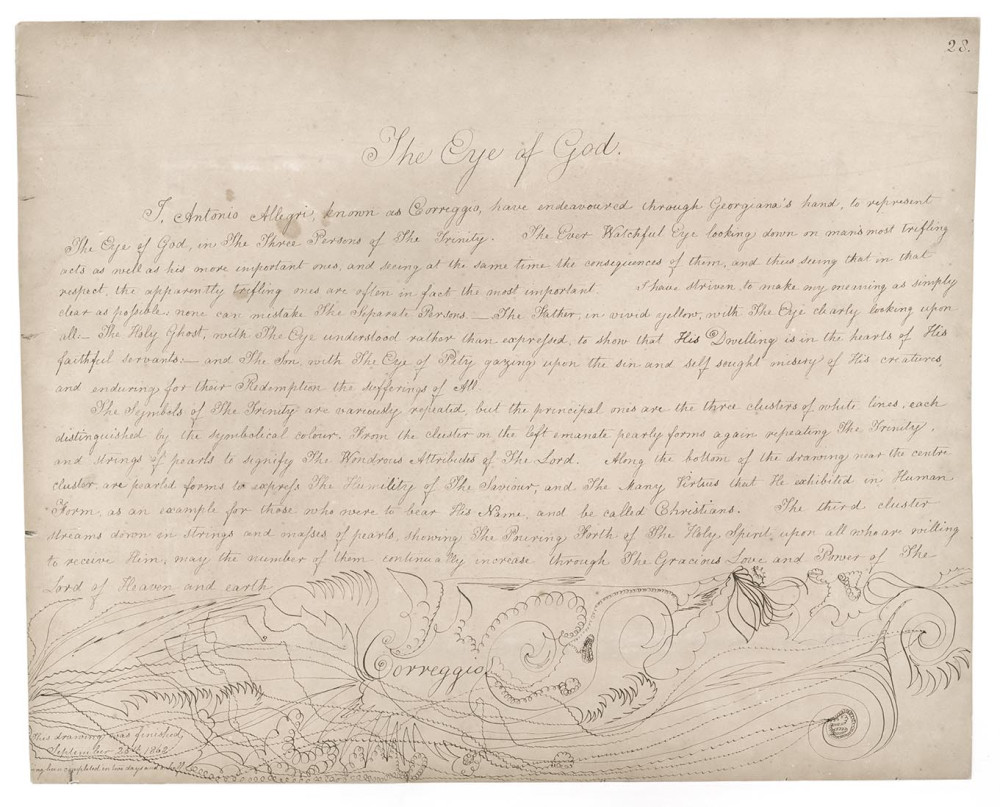 28.
The Eye of God.
I, Antonio Allegri, known as Correggio, have endeavoured through Georgiana's hand, to represent
The Eye of God, in The Three Persons of The Trinity. The Ever Watchful Eye looking down on man's most trifling
acts as well as his more important ones, and seeing at the same time the consequences of them, and thus seeing that in that
respect, the apparently trifling ones are often in fact the most important. I have striven to make my meaning as simply
clear as possible, none can mistake The Separate Persons. — The Father, in vivid yellow, with The Eye clearly looking upon
all. — The Holy Ghost, with The Eye understood rather than expressed, to show that His Dwelling is in the hearts of His
faithful servants: — and The Son, with The Eye of Pity gazing upon the sin and self sought misery of His creatures,
and enduring for their Redemption the sufferings of All
The Symbols of The Trinity are variously repeated, but the principal ones are the three clusters of white lines, each
distinguished by the symbolical colour. From the cluster on the left emanate pearly forms again repeating The Trinity,
and strings of pearls to signify The Wondrous Attributes of The Lord. Along the bottom of the drawing near the centre
cluster, are pearled forms to express The Humility of The Saviour, and The Many Virtues that He exhibited in Human
Form, as an example for those who were to bear His Name, and be called Christians. The third cluster
streams down in strings and masses of pearls, showing The Pouring Forth of The Holy Spirit, upon all who are willing
to receive Him, may the number of them continually increase through The Gracious Love and Power of The
Lord of Heaven and earth
Correggio
This drawing was finished,
September 25th 1862
completed in two days and a half